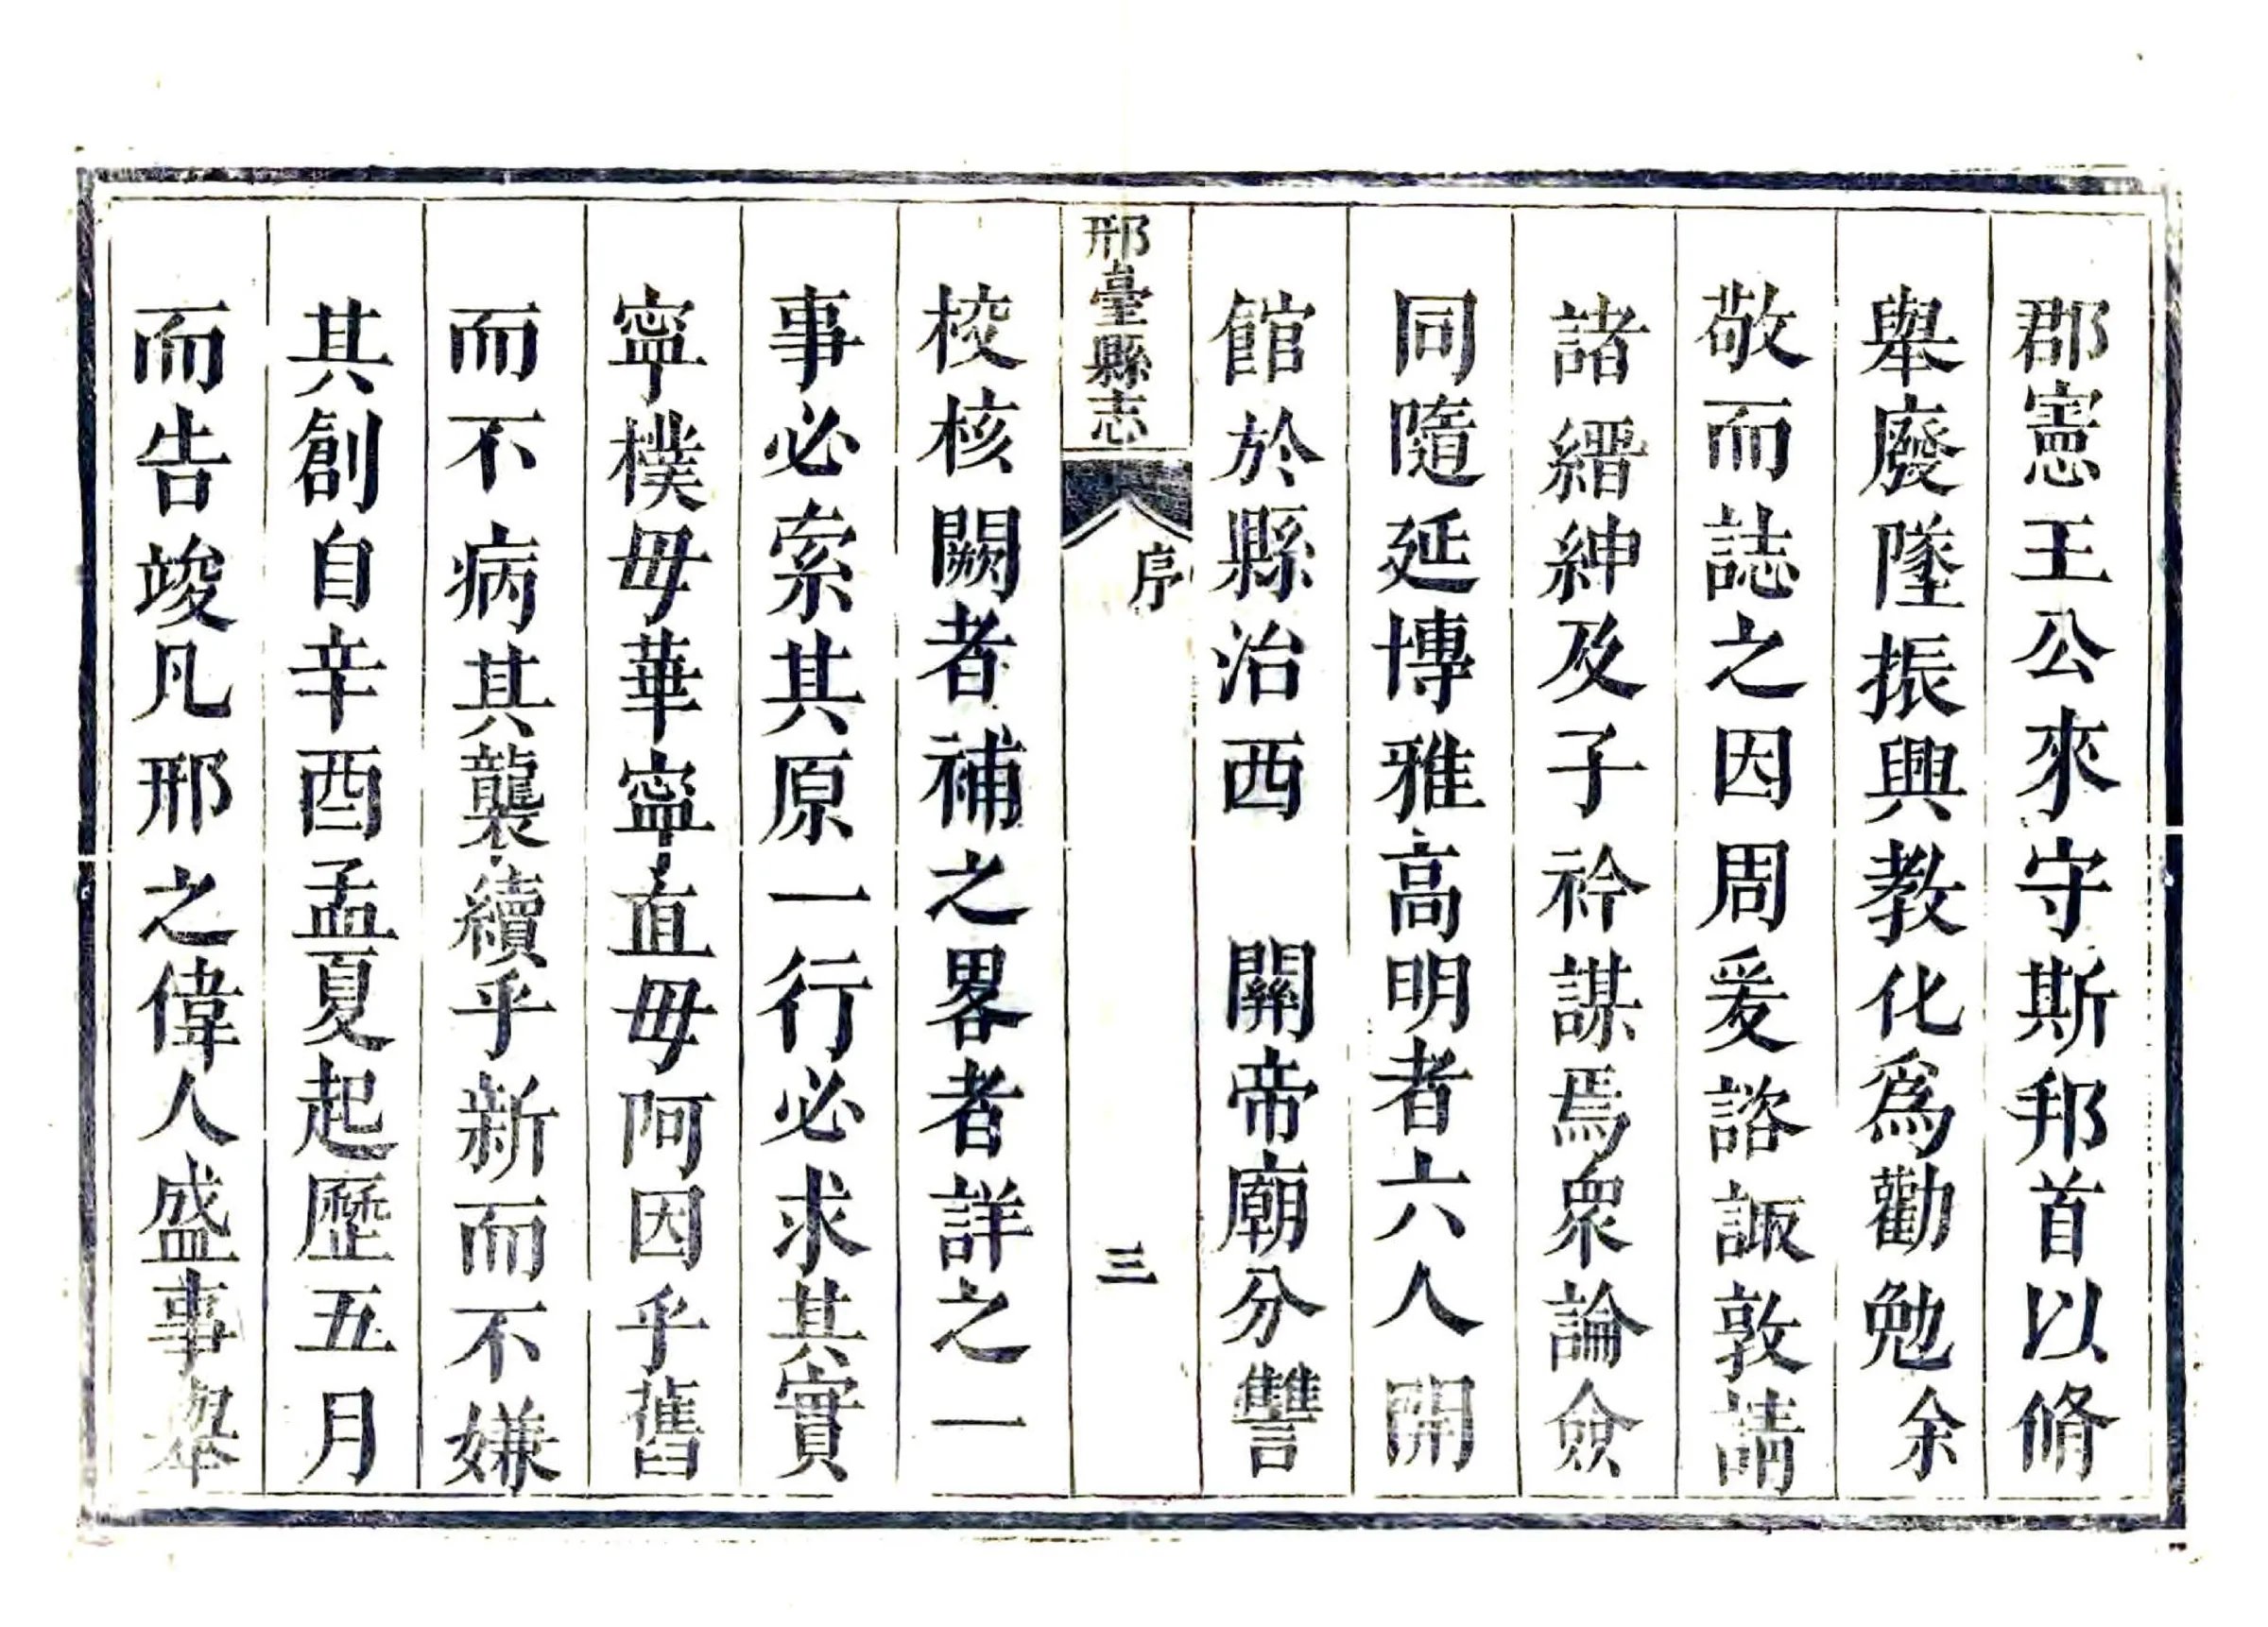 郡憲王公來守斯邦首以脩
舉廢墜振興教化爲勸勉余
敬而誌之因周爰諮諏敦請
諸縉紳及子衿謀焉衆論僉
同隨延博雅高明者六人開
館於縣治西　關帝廟分讐
邢臺縣志
序
三
校核闕者補之畧者詳之一
事必索其原一行必求其實
寧樸毋華寧直毋阿因乎舊
而不病其襲續乎新而不嫌
其創自辛酉孟夏起歷五月
而告竣凡邢之偉人盛事舉